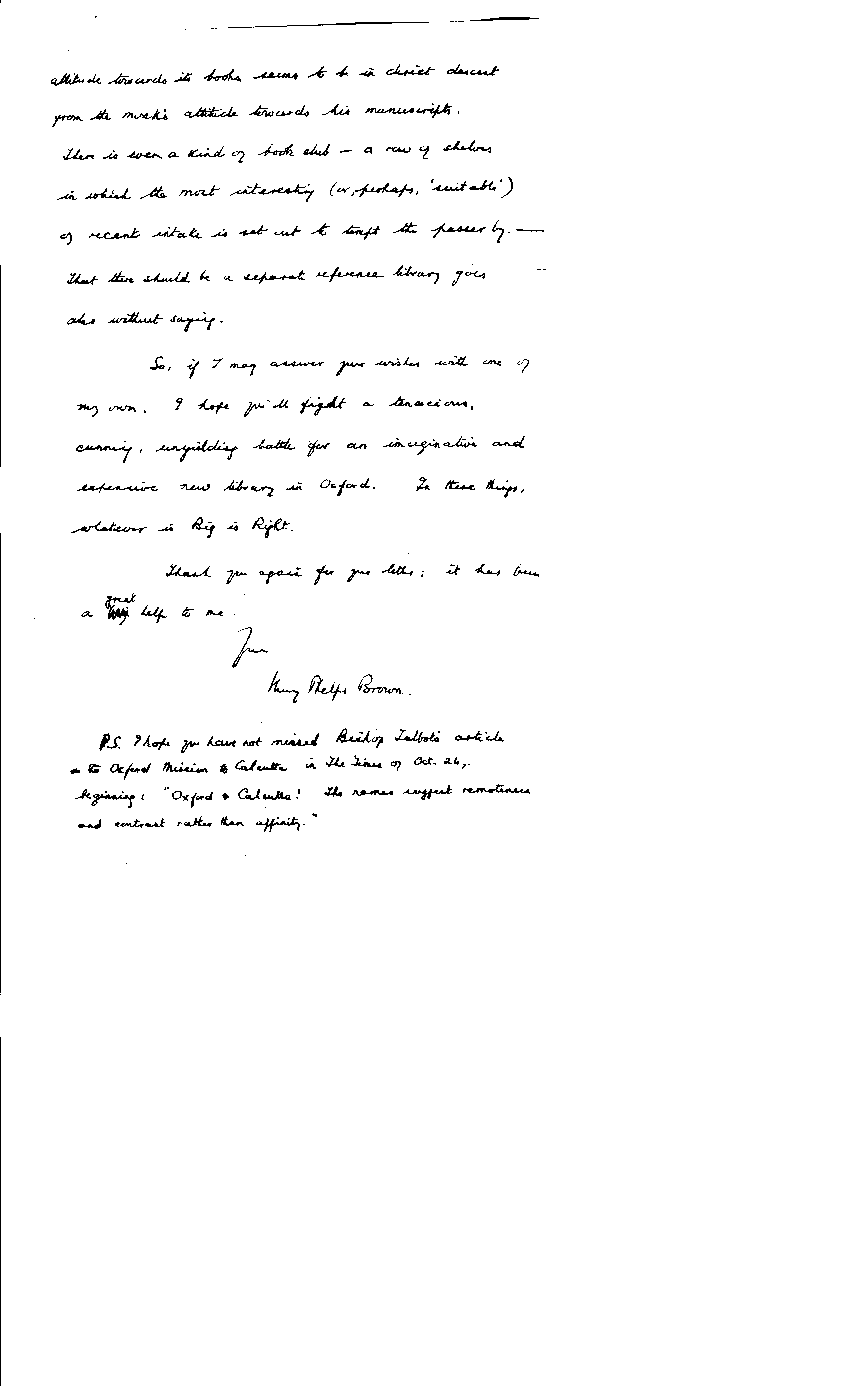 attitude towards its books seems to be in direct descent
from the monk's attitude towards his manuscripts.
There is even a kind of book club — a row of shelves
in which the most interesting (or, perhaps, 'suitable')
of recent intake is set out to tempt the passer by. —
That there should be a separate reference library goes
also without saying.
So, if I may answer your wishes with one of
my own, I hope you'll fight a tenacious,
cunning, unyielding battle for an imaginative and
expensive new library in Oxford. In these things,
whatever is Big is Right.
Thank you again for your letter; it has been
great
a help to me.
Yours
Henry Phelps Brown.
P.S. I hope you have not missed Bishop Talbot's article
on the Oxford Mission to Calcutta in The Times of Oct. 26,
beginning: "Oxford & Calcutta! The names suggest remoteness
and contrast rather than affinity."